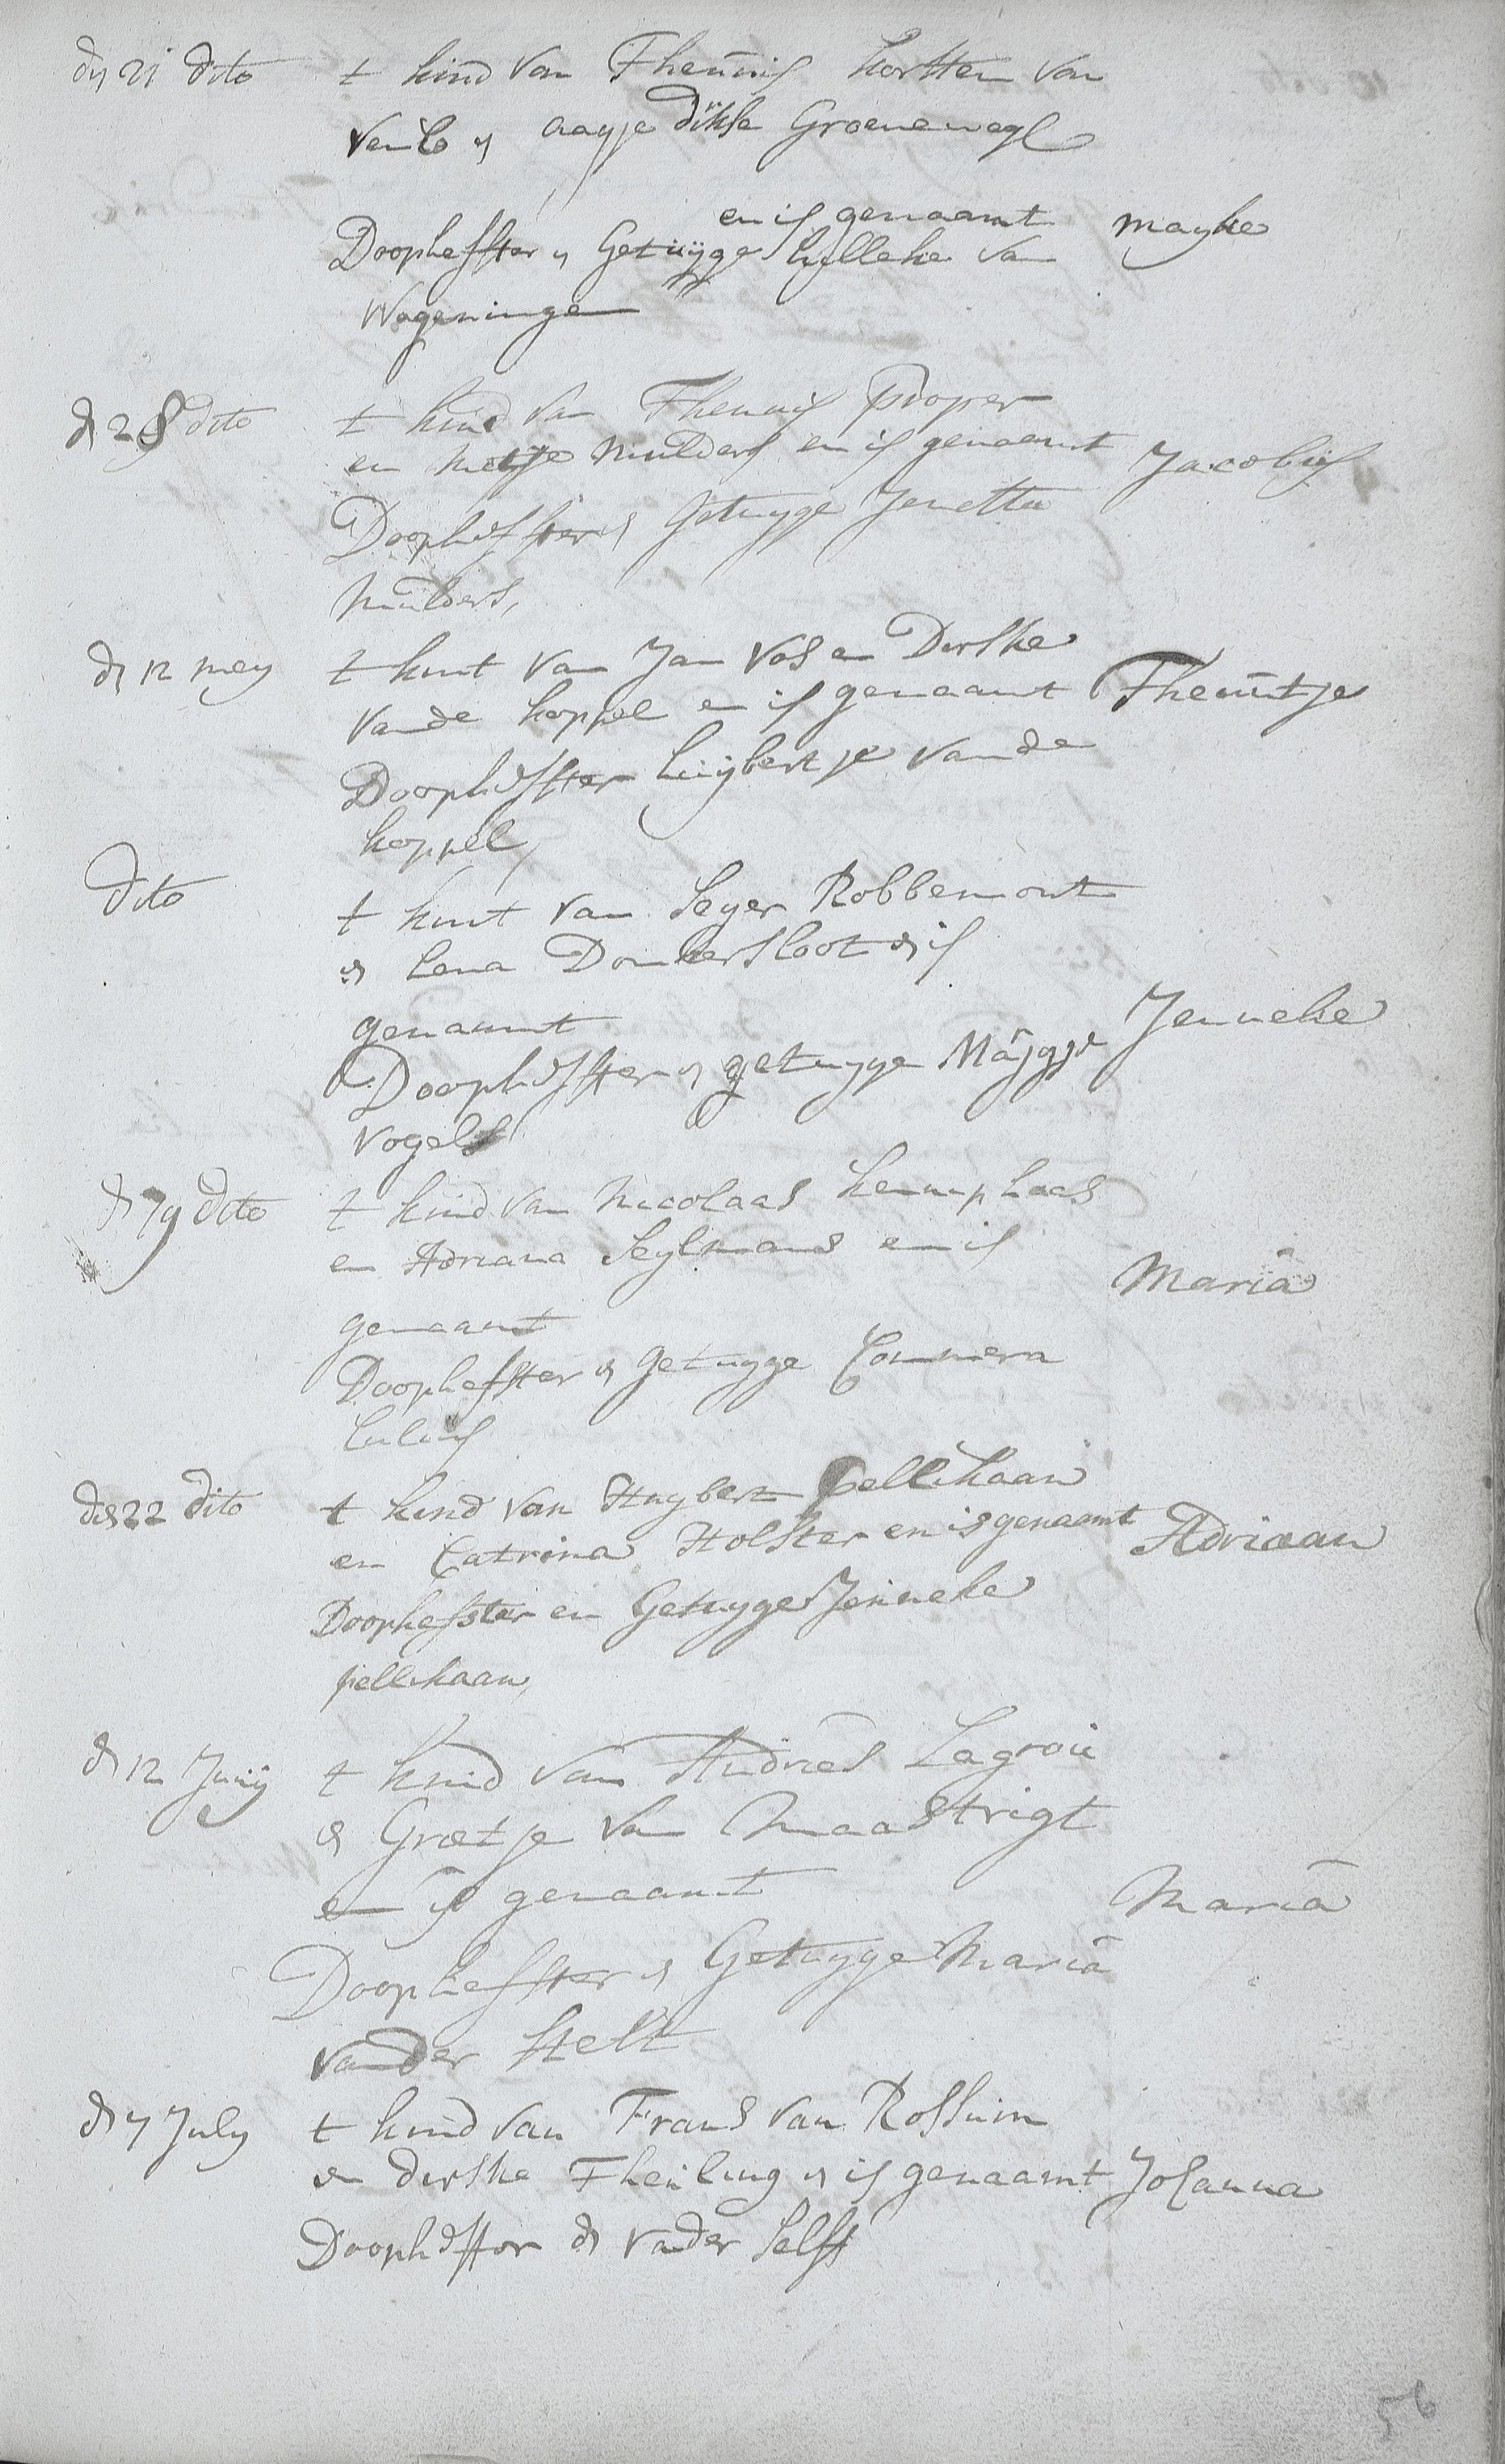 dn 21 dito t kind van Theunis korsten van
Venlo en aagje dikse Groenewegs
en is genaamt mayke
Doopheffster en Getuijge hilleke van
Wageningen
dn 28 dito t kind van Theunis Proper
en metje mulders en is genaamt Jacobus
Doopheffster en Getuyge Jenetta
mulders,
dn 12 mey t kint van Jan Vos en Dirske
vande koppel en is genaamt Theuntje
Doopheffster huijbertje vande
koppel,
dito t kint van Seger Robbemont
en Lena Donkersloot en is
genaamt Jenneke
Doopheffster en getuyge Maygje
Vogels
dn 19 dito t kind van Nicolaas
en Adriana Seylmans en is
genaamt Maria
Doopheffster en getuyge Commera
des 22 dito t kind van Huybert pellikaan
en Catrina Holster en is genaamt Adriaan
Doophefster en Getuyge Jenneke
pellikaan,
dn 12 Junij t kind van Andries Lagroú
en Grietje van Maastrigt
en is genaamt Maria
Doopheffster en Getuyge Maria
vander stelt
dn 7 July t kind van Frans van Rossum
en dirske Theuling en is genaamt Johanna
Doopheffter dn vader selfs
56